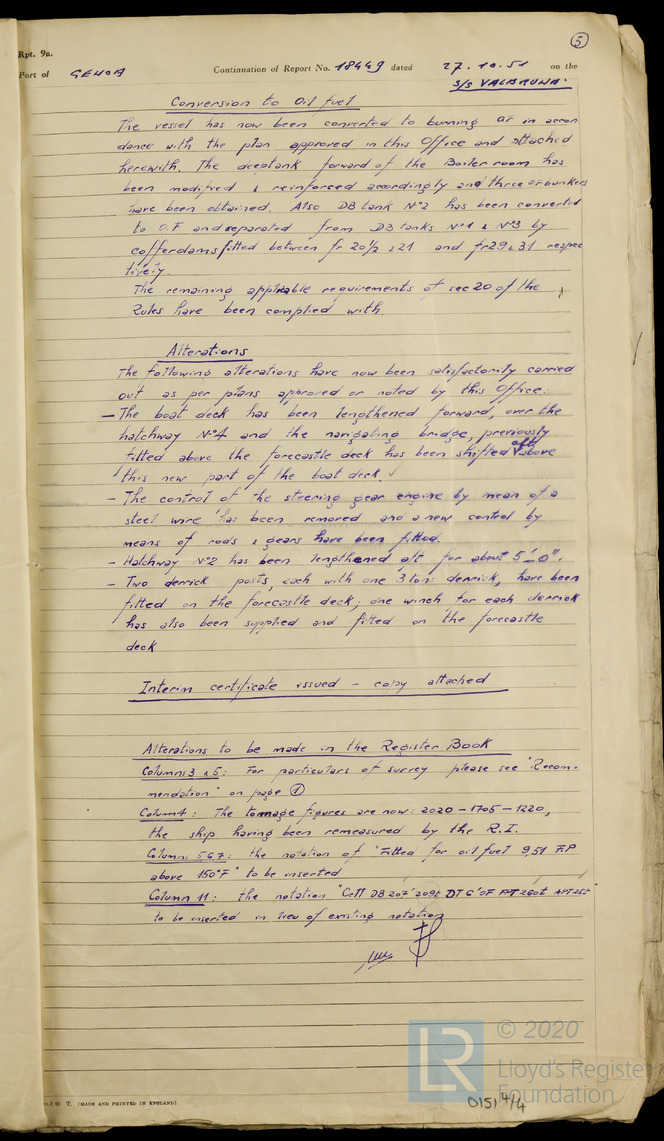 5
Rpt. 9a.
Port of GENOA Continuation of Report No. 18449 dated 27.10.51 on the
s/s VALBRUNA.
Conversion to Oil fuel
The vessel has now been converted to burning OF in accor
dance with the plan approved in this Office and attached
herewith. The deeptank forward of the Boiler room has
been modified & reinforced accordingly and three OF bunkers
have been obtained. Also DB tank Nº2 has been converted
to O.F and separated from DB tanks Nº1 & Nº3 by
cofferdams fitted between fr 20½ & 21 and fr 29 & 31 respec
tively.
The remaining applicable requirements of sec 20 of the
Rules have been complied with.
Alterations
The following alterations have now been satisfactorily carried
out as per plans approved or noted by this Office:
— The boat deck has been lengthened forward, over the
hatchway Nº4 and the navigating bridge, previously
fitted above the forecastle deck has been shifted aft above
this new part of the boat deck.
- The control of the steering gear engine by mean of a
steel wire has been removed and a new control by
means of rods & gears have been fitted.
- Hatchway Nº2 has been lengthened aft for about 5'-0".
- Two derrick posts, each with one 3 tons derrick, have been
fitted on the forecastle deck; one winch for each derrick
has also been supplied and fitted on the forecastle
deck
Interim certificate issued - copy attached
Alterations to be made in the Register Book
Columns 3 & 5: For particulars of survey please see "Recom-
mendation" on page 1
Column 4: The tonnage figures are now: 2020-1705-1220,
the ship having been remeasured by the R.I.
Columns 5 6 7: the notation of "Fitted for oil fuel 9,51 F.P
above 150°F" to be inserted
Column 11: the notation "Cell DB 207' 209t DT 6' OF FPT 260t APT 25t"
to be inserted in lieu of existing notation
T. (MADE AND PRINTED IN ENGLAND)
LR
© 2020
Lloyd's Register
Foundation
0151 4/4